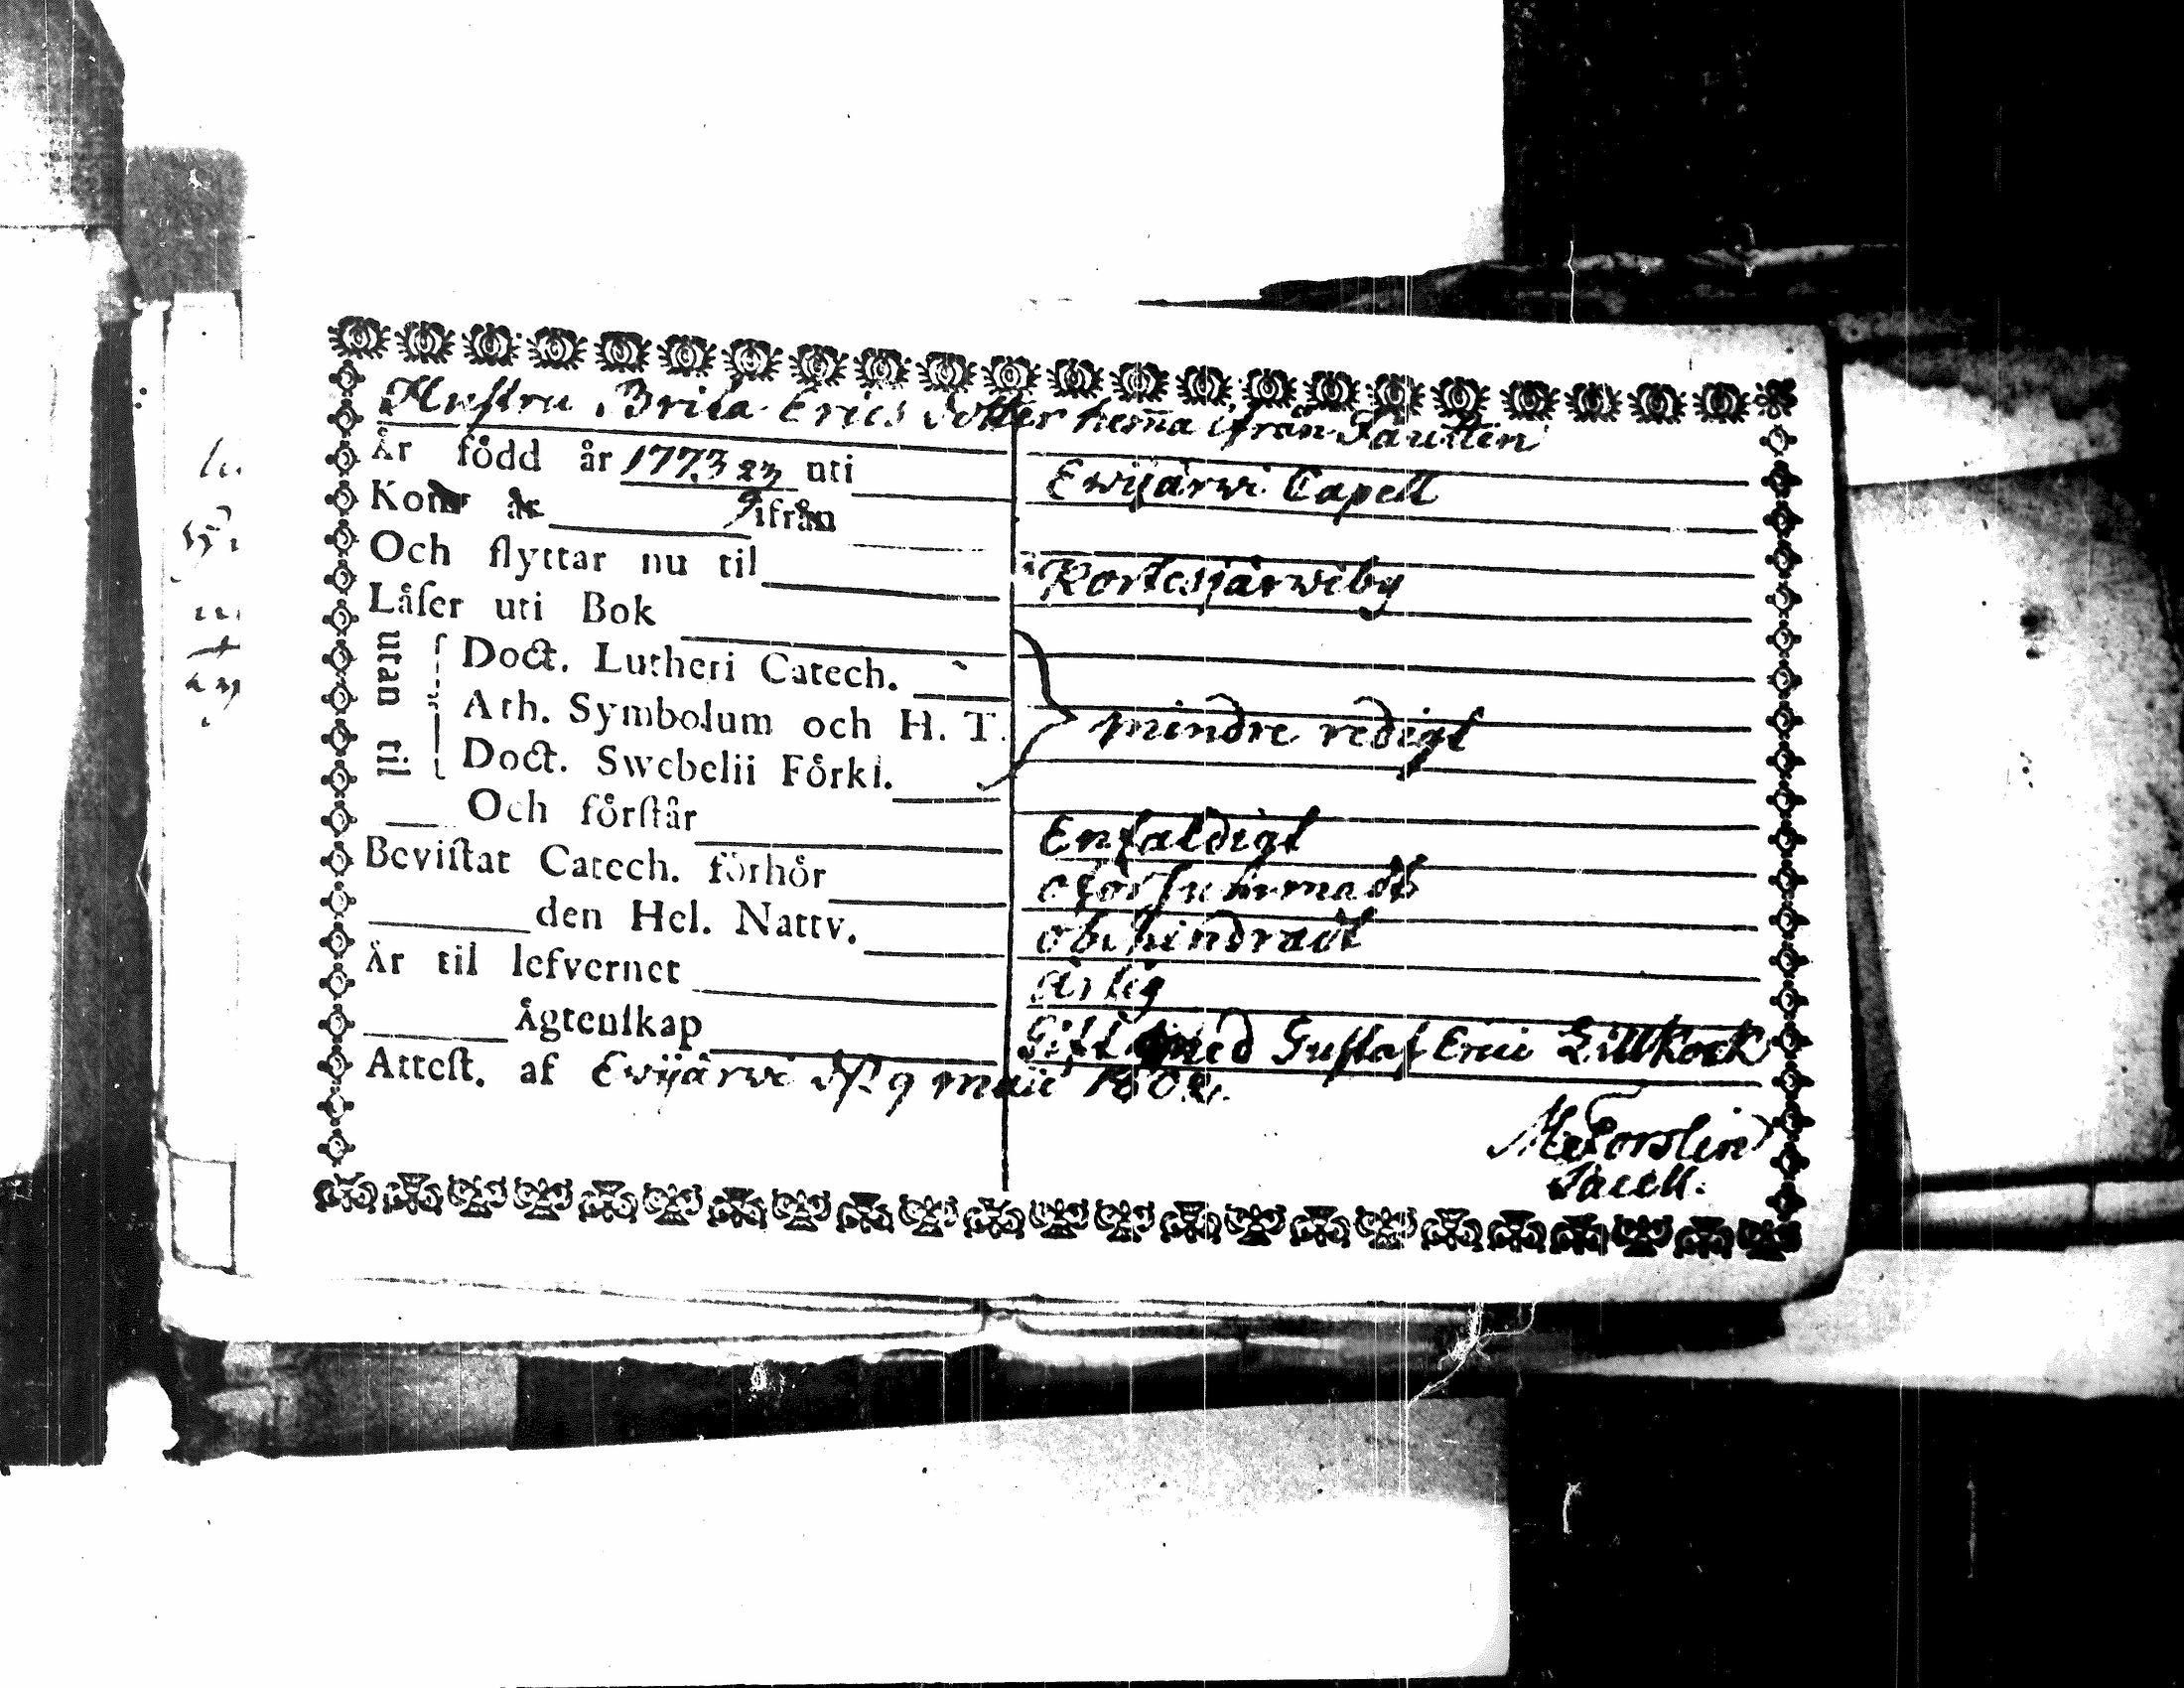 Hustru Brita Erics dotter hem̄a ifrån
År född år 1773 23/9 uti Ewijärwi Capell
Kom år ifrån
Och flyttar nu til Kortesjärwiby
Låſer uti Bok
utan til
Doct. Lutheri Catech.
Ath. Symbolum och H. T. mindre redigt
Doct. Swebelii Förkl.
Och förſtår Enfaldigt
Beviſtat Catech. förhör oförsummadt
den Hel. Nattv. obehindradt
År til lefvernet ärlig
Ägtenſkap Gift med Gustaf Erici Lillkock
Atteſt. af Ewijärwi d. 9 maii 1802.
Forslin
Sacell.